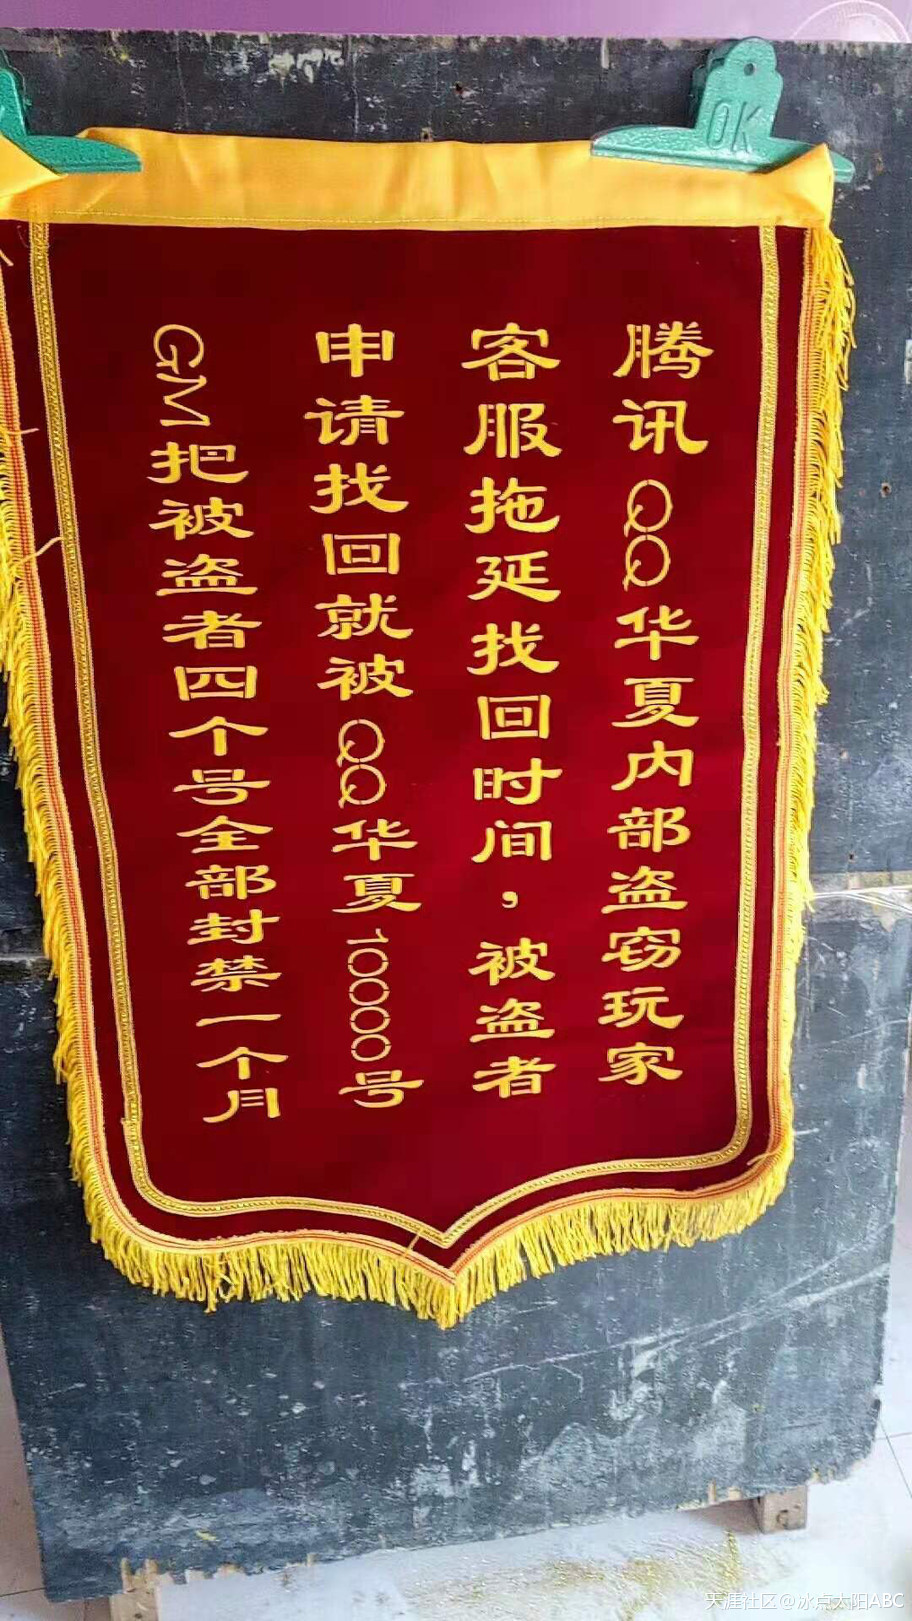 腾讯QQ华夏内部盗窃玩家
客服拖延找回时间，被盗者
申请找回就被QQ华夏10000号
GM把被盗者四个号全部封禁一个月
OK
天涯社区@冰点太阳ABC